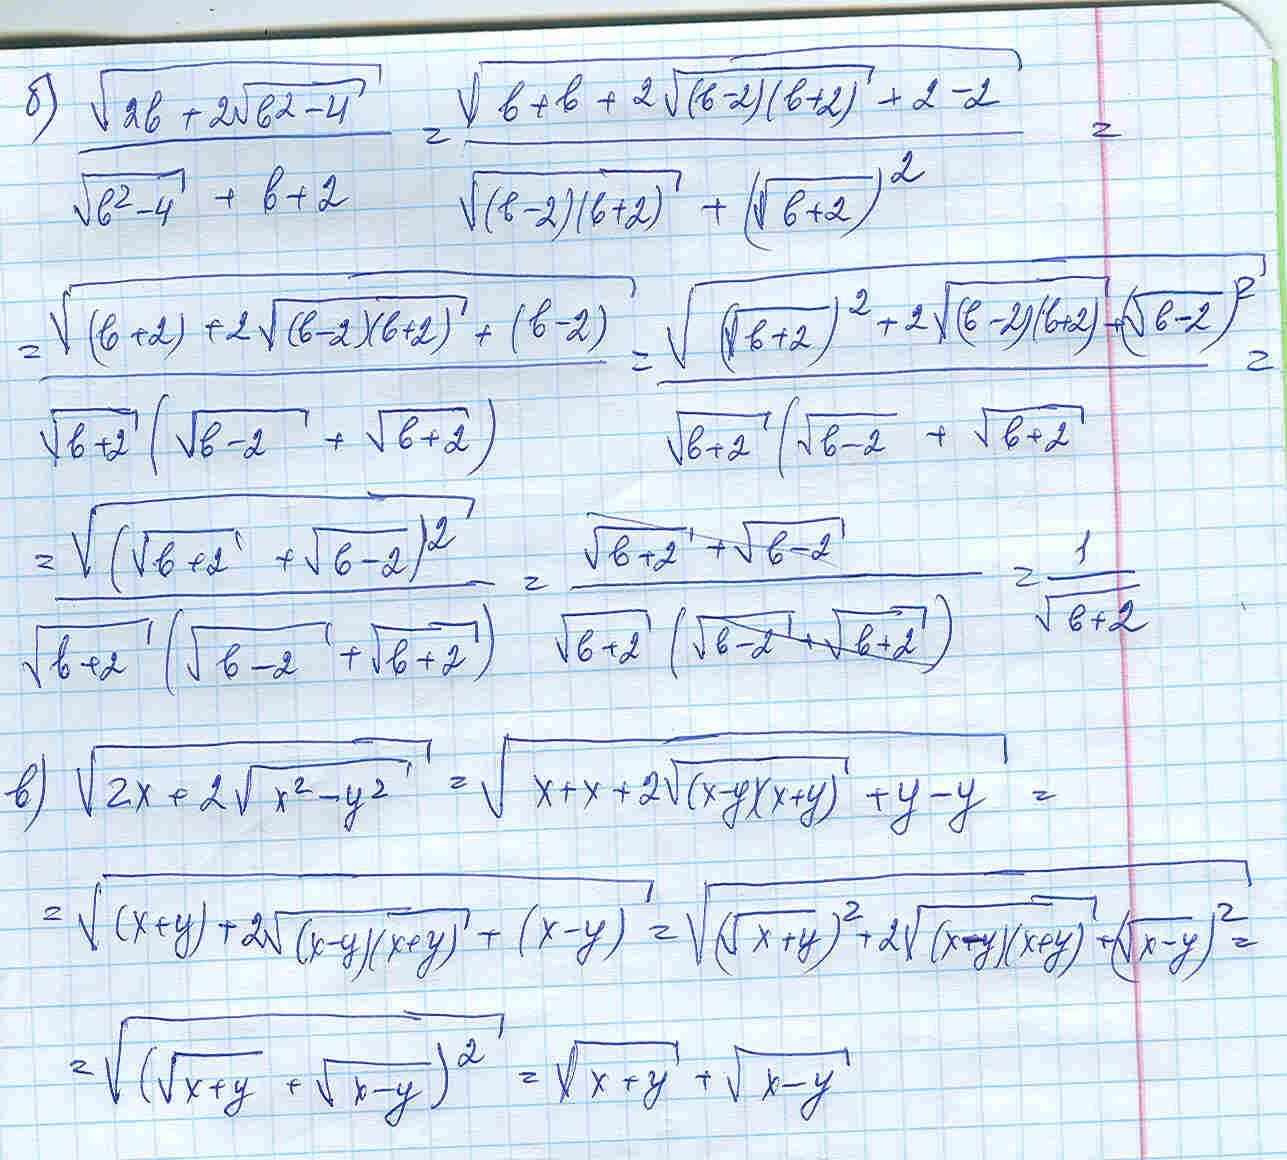 б) √(2b + 2√(b² - 4)) / (√(b² - 4) + b + 2) = √(b + b + 2√((b-2)(b+2)) + 2 - 2) / (√((b-2)(b+2)) + (√(b+2))²) =
= √((b+2) + 2√((b-2)(b+2)) + (b-2)) / (√(b+2) (√(b-2) + √(b+2))) = √((√(b+2))² + 2√((b-2)(b+2)) + (√(b-2))²) / (√(b+2) (√(b-2) + √(b+2)) =
= √((√(b+2) + √(b-2))²) / (√(b+2) (√(b-2) + √(b+2))) = (√(b+2) + √(b-2)) / (√(b+2) (√(b-2) + √(b+2))) = 1 / √(b+2)
в) √(2x + 2√(x² - y²)) = √(x + x + 2√((x-y)(x+y)) + y - y) =
= √((x+y) + 2√((x-y)(x+y)) + (x-y)) = √((√(x+y))² + 2√((x-y)(x+y)) + (√(x-y))²) =
= √((√(x+y) + √(x-y))²) = √(x+y) + √(x-y)